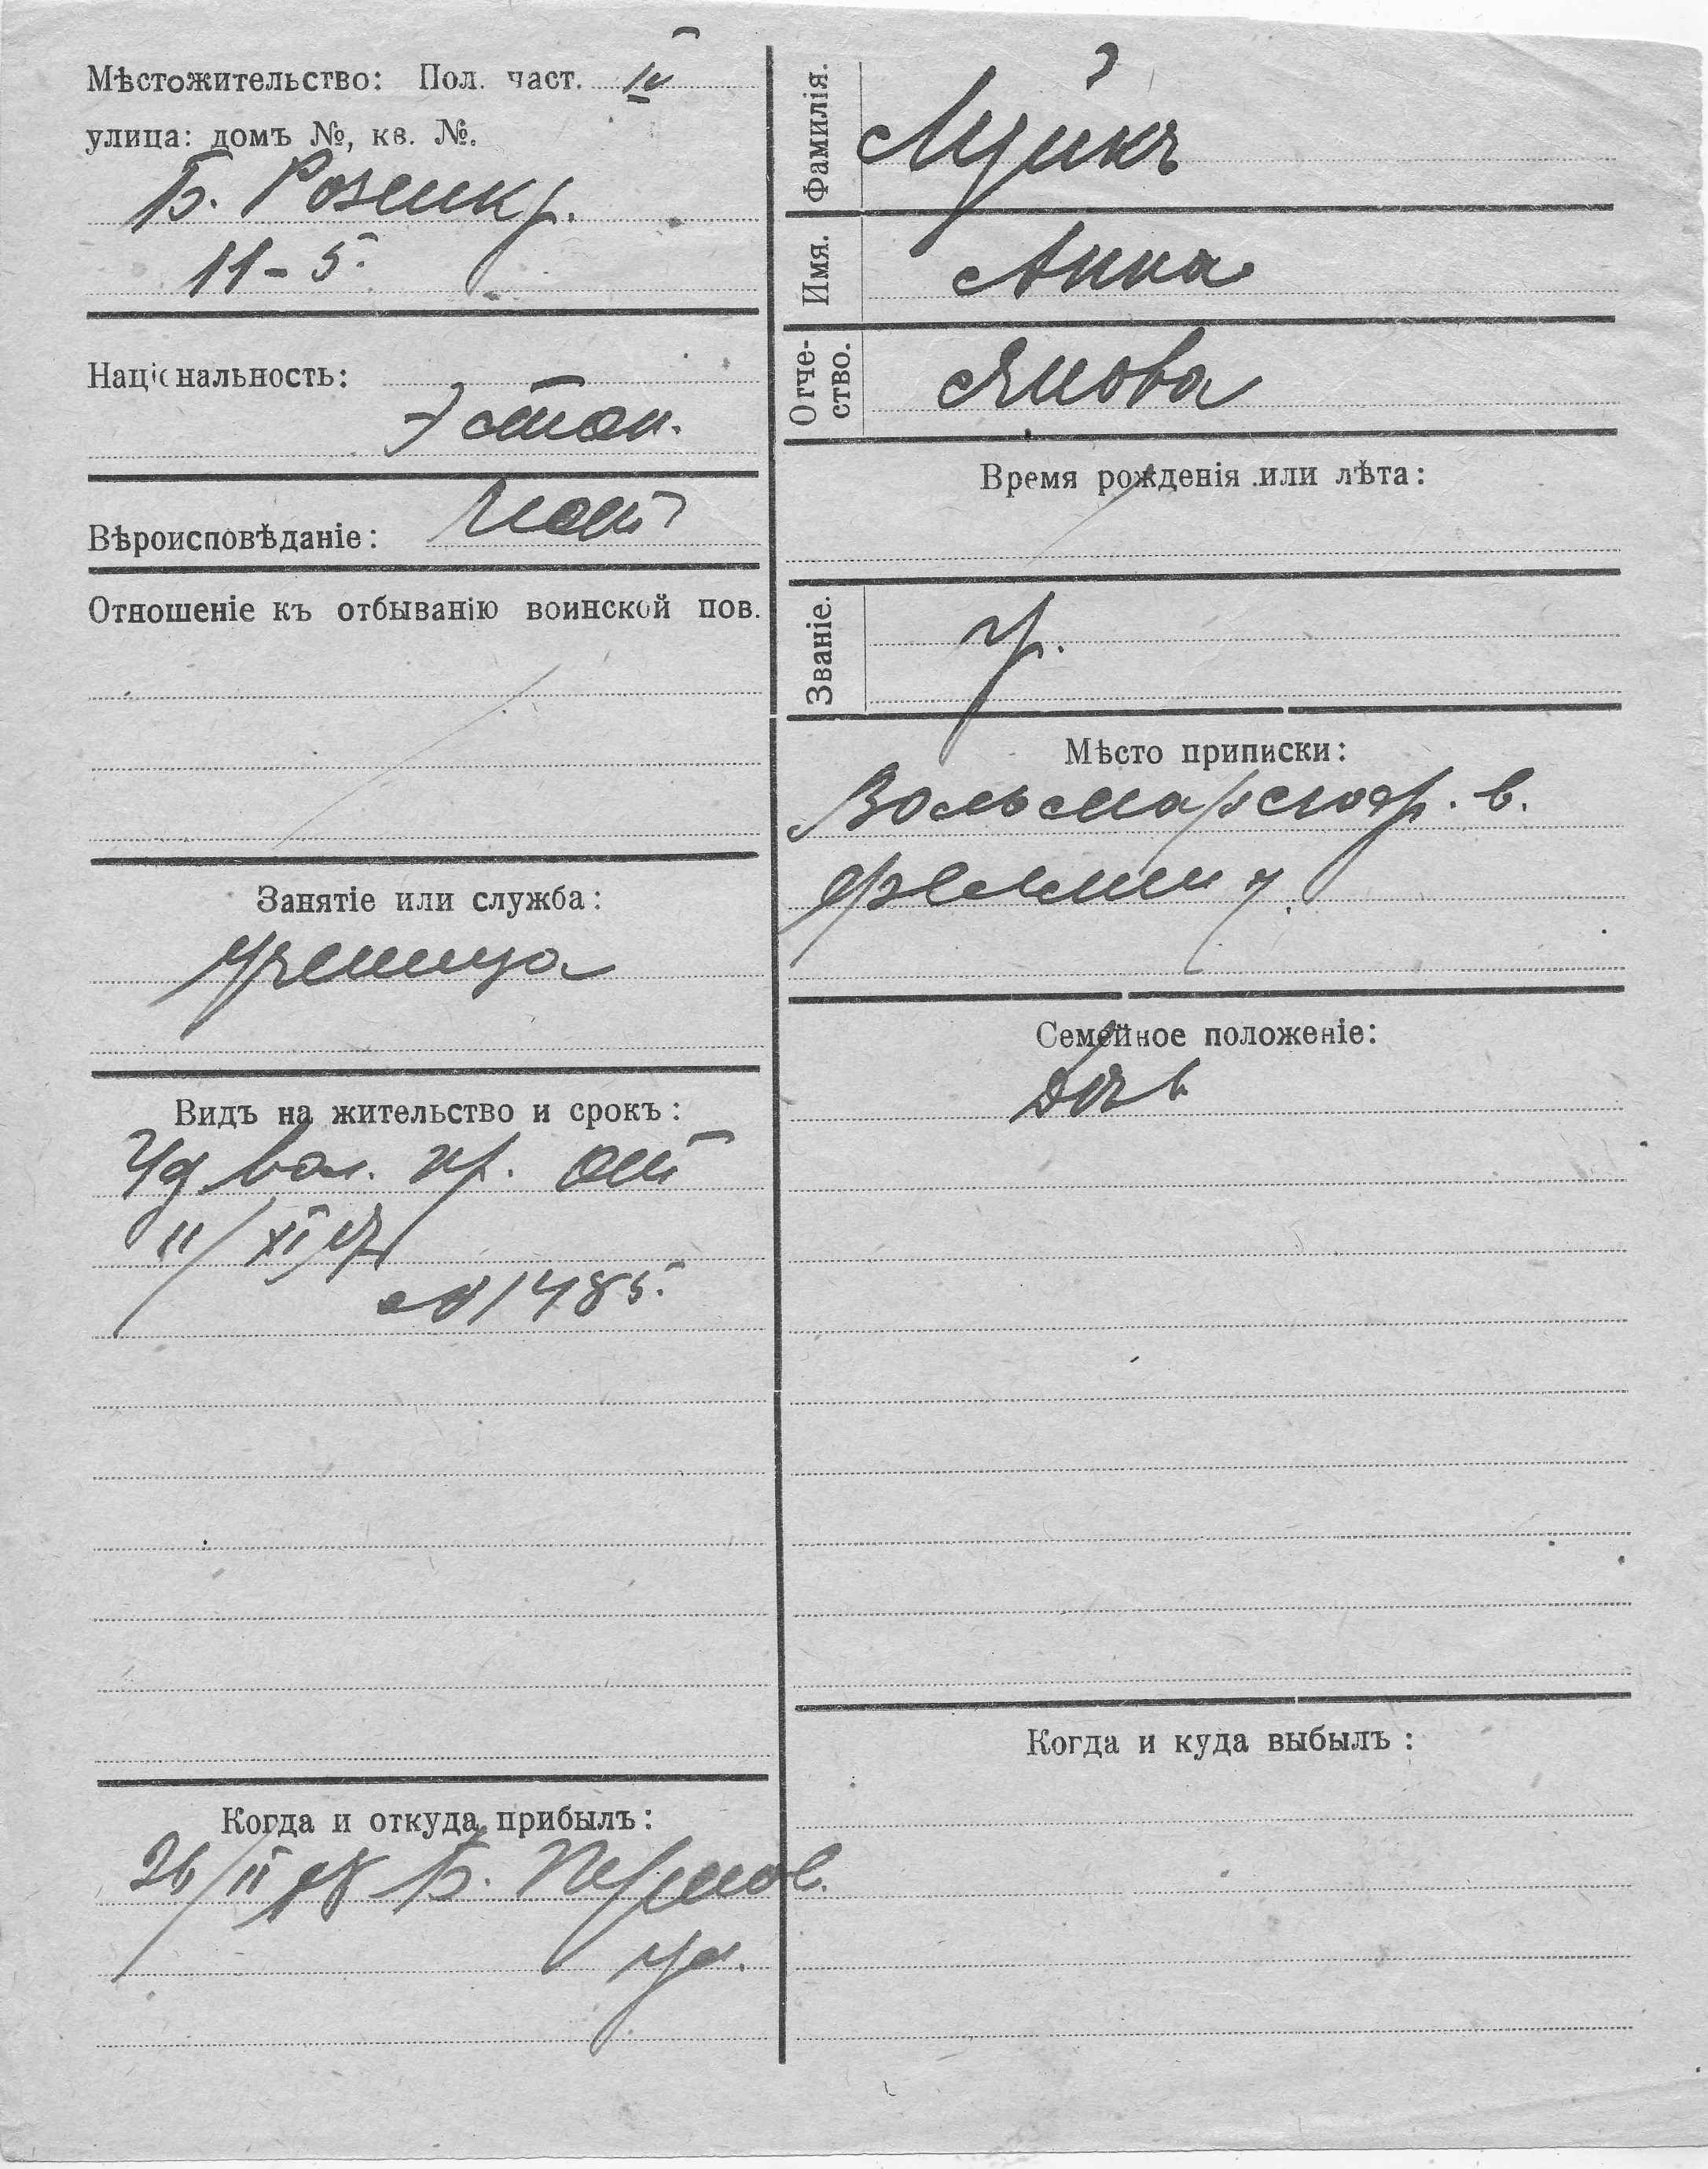 Мѣстожительство: Пол. част. IV
улица: домъ №, кв. №.
Б. Розенкр.
11-5.
Національность:
Эстон.
Вѣроисповѣданіе:
Отношеніе къ отбыванію воинской пов.
Занятіе или служба:
ученица
Видъ на жительство и срокъ:
Уд вол. пр. от
11/XI 17
№ 1485.
Когда и откуда прибылъ:
26/II 18 Б. Пернов.
уѣ.
Фамилія. Луикъ
Имя. Анна
Отчество. Янова
Время рожденія или лѣта:
Званіе. гр.
Мѣсто приписки:
Вольмарско гр. в.
Семейное положеніе:
Дочь
Когда и куда выбылъ: